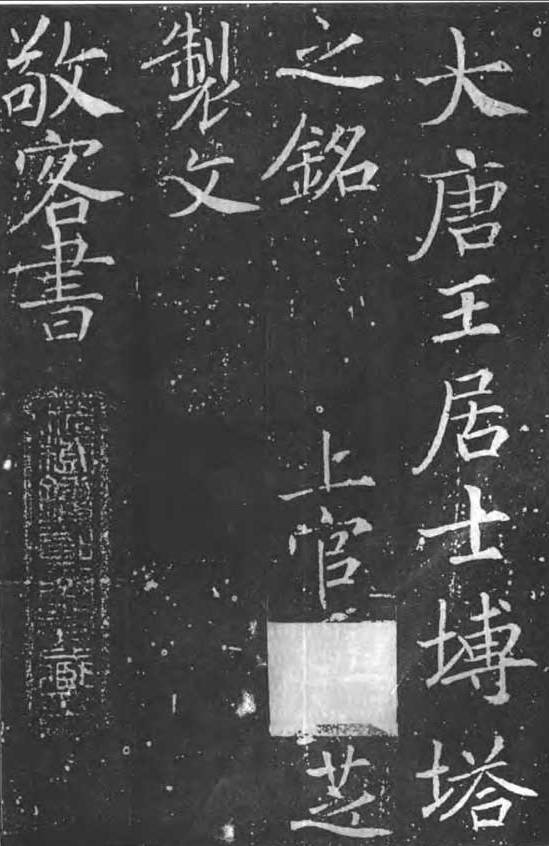 大唐王居士塼塔
之銘 上官 芝
製文
敬客書